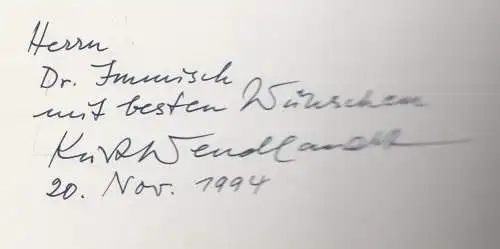 Herrn
Dr. Immisch
mit besten Wünschen
Kurt Wendlandt
20. Nov. 1994